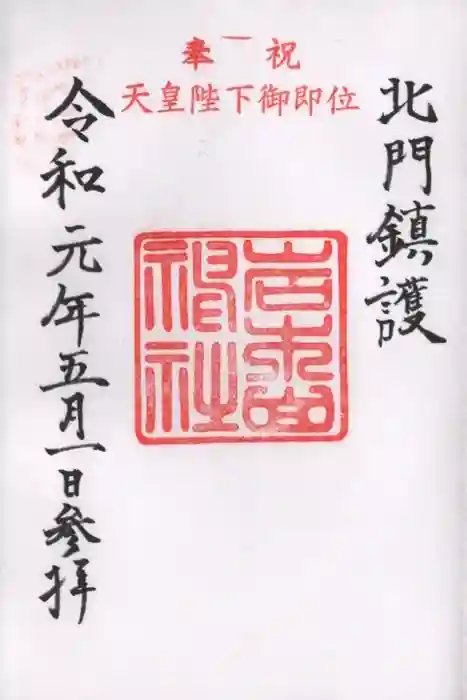 奉祝
天皇陛下御即位
北門鎮護
岩木山神社
令和元年五月一日参拝